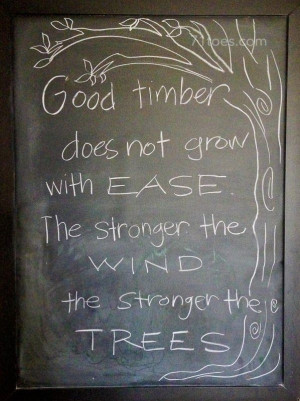 71toes.com
Good timber
does not grow
with EASE.
The stronger the
WIND
the stronger the
TREES